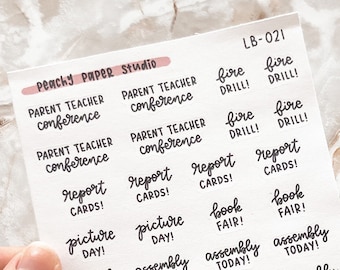 Peachy Paper Studio LB-021
PARENT TEACHER PARENT TEACHER fire fire
conference conference DRILL! DRILL!
PARENT TEACHER PARENT TEACHER fire fire
conference conference DRILL! DRILL!
report report report report
CARDS! CARDS! CARDS! CARDS!
picture picture book book
DAY! DAY! FAIR! FAIR!
picture picture assembly assembly
DAY! DAY! TODAY! TODAY!